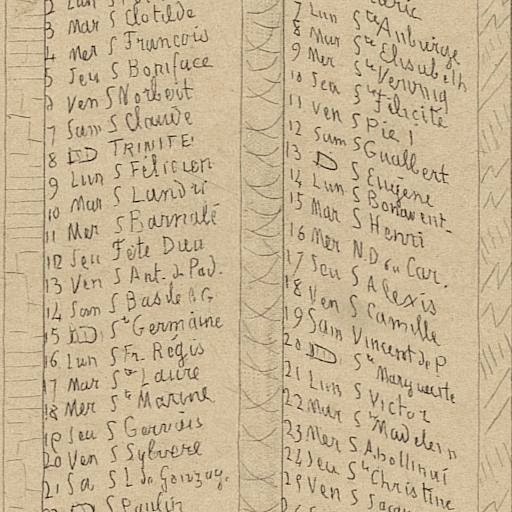 3 Mar S Clotilde
4 Mer S François
5 Jeu S Boniface
6 Ven S Norbert
7 Sam S Claude
8 D TRINITE
9 Lun S Félicien
10 Mar S Landri
11 Mer S Barnabé
12 Jeu Fête Dieu
13 Ven S Ant. de Pad.
14 Sam S Basile
15 D Ste Germaine
16 Lun S Fr. Régis
17 Mar Ste Laure
18 Mer Ste Marine
19 Jeu S Gervais
20 Ven S Sylvere
21 Sa S L de Gonzag.
S Paulin
7 Lun Ste Aubierge
8 Mar Ste Elisabeth
9 Mer Ste Veroniq
10 Jeu Ste Félicité
11 Ven S Pie I
12 Sam S Gualbert
13 D S Eugène
14 Lun S Bonavent.
15 Mar S Henri
16 Mer N.D du Car.
17 Jeu S Alexis
18 Ven S Camille
19 Sam Vincent de P
20 D Ste Marguerite
21 Lun S Victor
22 Mar Ste Madelein
23 Mer S Apollinai
24 Jeu Ste Christine
25 Ven S Jacqu